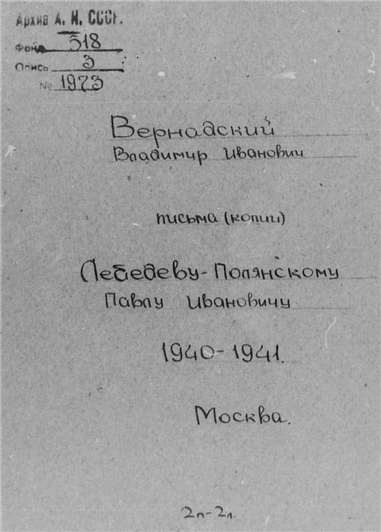 Архив А. Н. СССР.
Фонд 518
Опись 3
№ 1973
Вернадский
Владимир Иванович
письма (копии)
Лебедеву-Полянскому
Павлу Ивановичу
1940-1941.
Москва.
2п-2л.